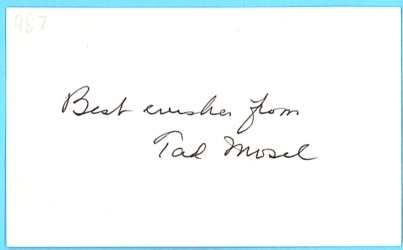 987
Best wishes from
Tad Mosel